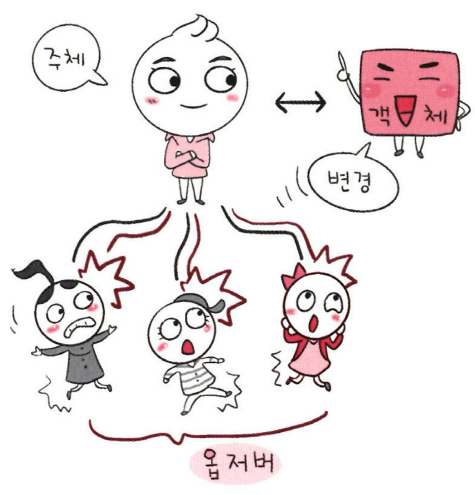 주체
객체
변경
옵저버